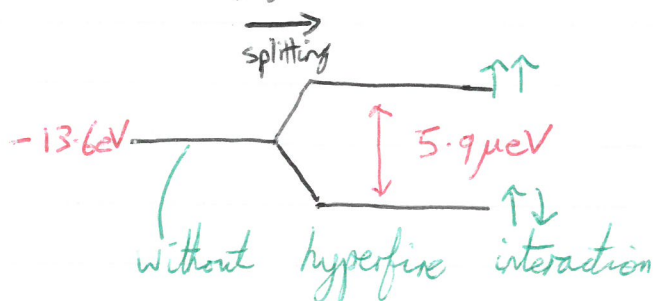 splitting
↑↑
-13.6eV
5.9μeV
↑↓
without hyperfire interaction